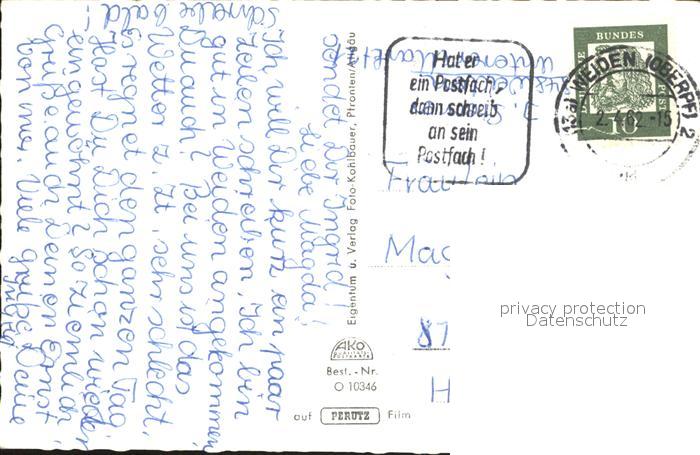 Liebe Magda!
Ich will Dir kurz ein paar
Zeilen schreiben. Ich bin
gut in Weiden angekommen.
Du auch? Bei uns ist das
Wetter z. Zt. sehr schlecht.
Es regnet den ganzen Tag.
Hast Du Dich schon wieder
eingewöhnt? So ziemlich
Grüße auch Deinen Ernst
von mir. Viele Grüße Deine
Ingrid
Schreibe bald!
sendet Dir Ingrid!
Eigentum u. Verlag Foto-Kohlbauer, Pfronten/Allgäu
AKO
QUALITÄTS
POSTKARTE
Best.-Nr.
O 10346
auf PERUTZ Film
Hat er
ein Postfach,
dann schreib
an sein
Postfach!
DEUTSCHE BUNDESPOST
10
WEIDEN (OBERPF) 2
2.4.62-15
Mag
87
H
privacy protection
Datenschutz